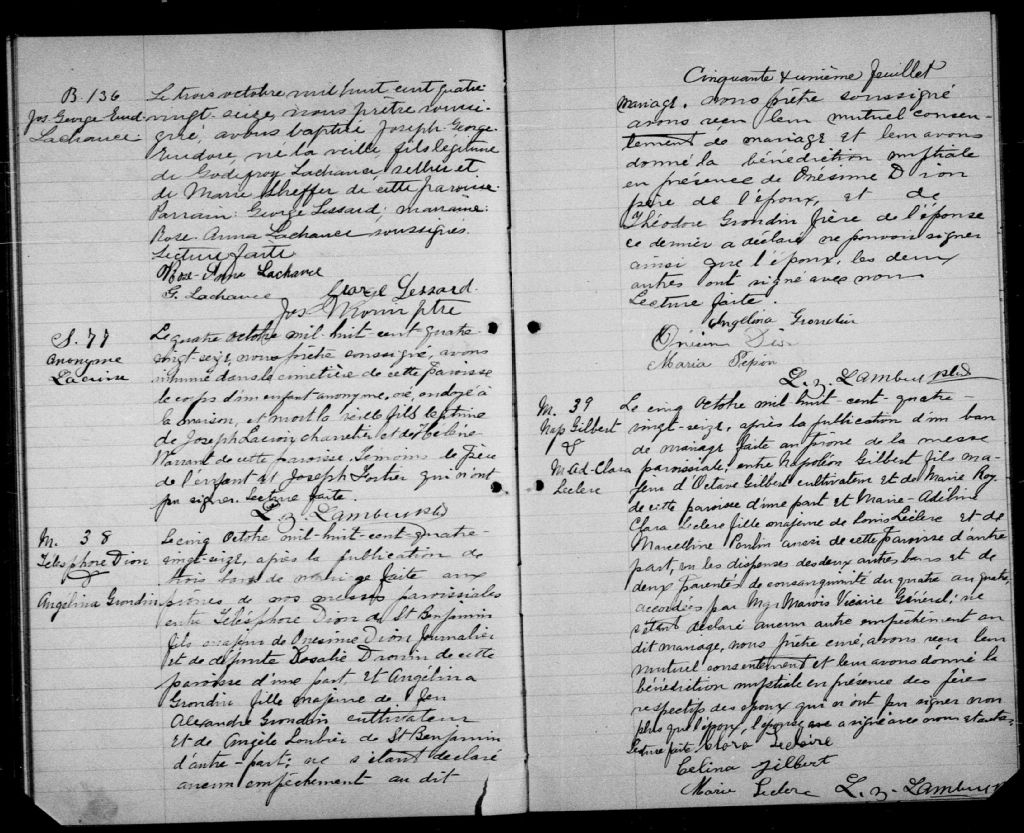 B. 136
Jos. George Eud.
Lachance
Le trois octobre mil huit cent quatre
vingt-seize, nous prêtre soussi-
gné, avons baptisé Joseph-George
Eudore, né la veille, fils légitime
de Godefroy Lachance sellier et
de Marie Sheffer de cette paroisse.
Parrain: George Lessard; marraine:
Rose-Anna Lachance soussignés.
Lecture faite
Rose-Anna Lachance
G. Lachance George Lessard.
Jos Drouin ptre
S. 77
Anonyme
Lacroix
Le quatre octobre mil-huit-cent quatre
vingt-seize, nous prêtre soussigné, avons
inhumé dans le cimetière de cette paroisse
le corps d'un enfant anonyme, né, ondoyé à
la maison, et mort la veille fils légitime
de Joseph Lacroix charretier et de Hélène
de cette paroisse. Témoins le père
de l'enfant et Joseph Fortier qui n'ont
pu signer. Lecture faite.
L. Z. Lambert ptre
M. 38
Télésphore Dion
&
Angélina Grondin
Le cinq Octobre mil-huit-cent-quatre-
vingt-seize, après la publication de
trois bans de mariage faite aux
prônes de nos messes paroissiales
entre Télésphore Dion de St Benjamin
fils majeur de Onésime Dion Journalier
et de défunte Rosalie Drouin de cette
paroisse d'une part, et Angélina
Grondin fille majeure de feu
Alexandre Grondin cultivateur
et de Angèle Loubier de St Benjamin
d'autre-part; ne s'étant déclaré
aucun empêchement au dit
Cinquante & unième feuillet
mariage, nous prêtre soussigné
avons reçu leur mutuel consen-
tement de mariage et leur avons
donné la bénédiction nuptiale
en présence de Onésime Dion
père de l'époux, et de
Théodore Grondin frère de l'épouse
ce dernier a déclaré ne pouvoir signer
ainsi que l'époux, les deux
autres ont signé avec nous
Lecture faite.
Angélina Grondin
Onésime Dion
Maria Pépin
L. Z. Lambert ptre
M. 39
Nap Gilbert
&
M. Ad-Clara
Leclerc
Le cinq Octobre mil huit-cent-quatre-
vingt-seize, après la publication d'un ban
de mariage faite au prône de la messe
paroissiale, entre Napoléon Gilbert fils ma-
jeur d'Octave Gilbert cultivateur et de Marie Roy
de cette paroisse d'une part et Marie-Adéline
Clara Leclerc fille majeure de Louis Leclerc et de
Marcelline Poulin aussi de cette paroisse d'autre
part, vu les dispenses des deux autres bans et de
deux parentés de consanguinité du quatre au quatre,
accordées par Mgr Marois Vicaire Général; ne
s'étant déclaré aucun autre empêchement au
dit mariage, nous prêtre curé, avons reçu leur
mutuel consentement et leur avons donné la
bénédiction nuptiale en présence des pères
respectifs des époux qui n'ont pu signer non
plus que l'époux, l'épouse a signé avec nous et autres
Lecture faite Clara Leclerc
Celina Gilbert
Marie Leclerc L. Z. Lambert